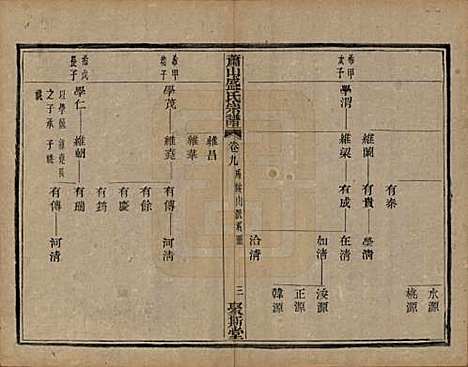 希甲
次子
學渭
維蘭
有泰
水源
桃源
有貴
學清
維梁
有成
在清
如清
浚源
正源
洽清
韓源
蕭山盛氏宗譜
卷九
三
聚斯堂
希甲
學茂
維昌
維華
維堯
有傳
河清
有餘
有慶
希戊
長子
學仁
維朝
有瑞
有鏘
有傳
河清
之子承子